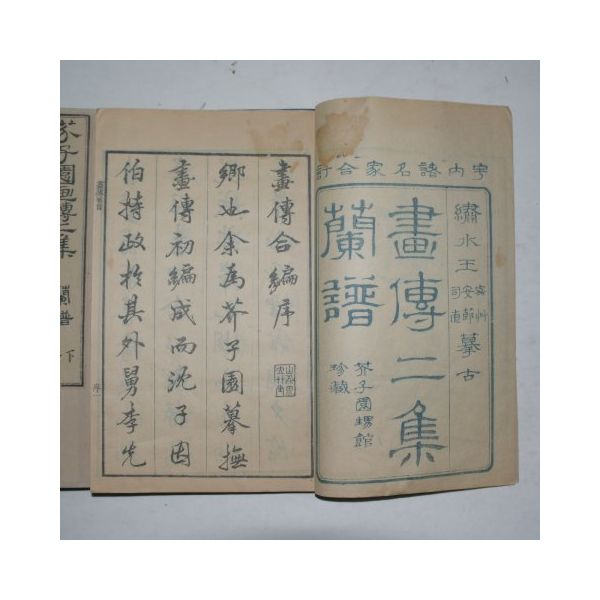 宇內諸名家合訂
繡水王宓艸安節司直摹古
畫傳二集
蘭譜
芥子園甥館
珍藏
畫傳合編序
鄉也余為芥子園摹撫
畫傳初編成而沈子因
伯持政於其外舅李先
芥子園畫傳二集
蘭譜
下